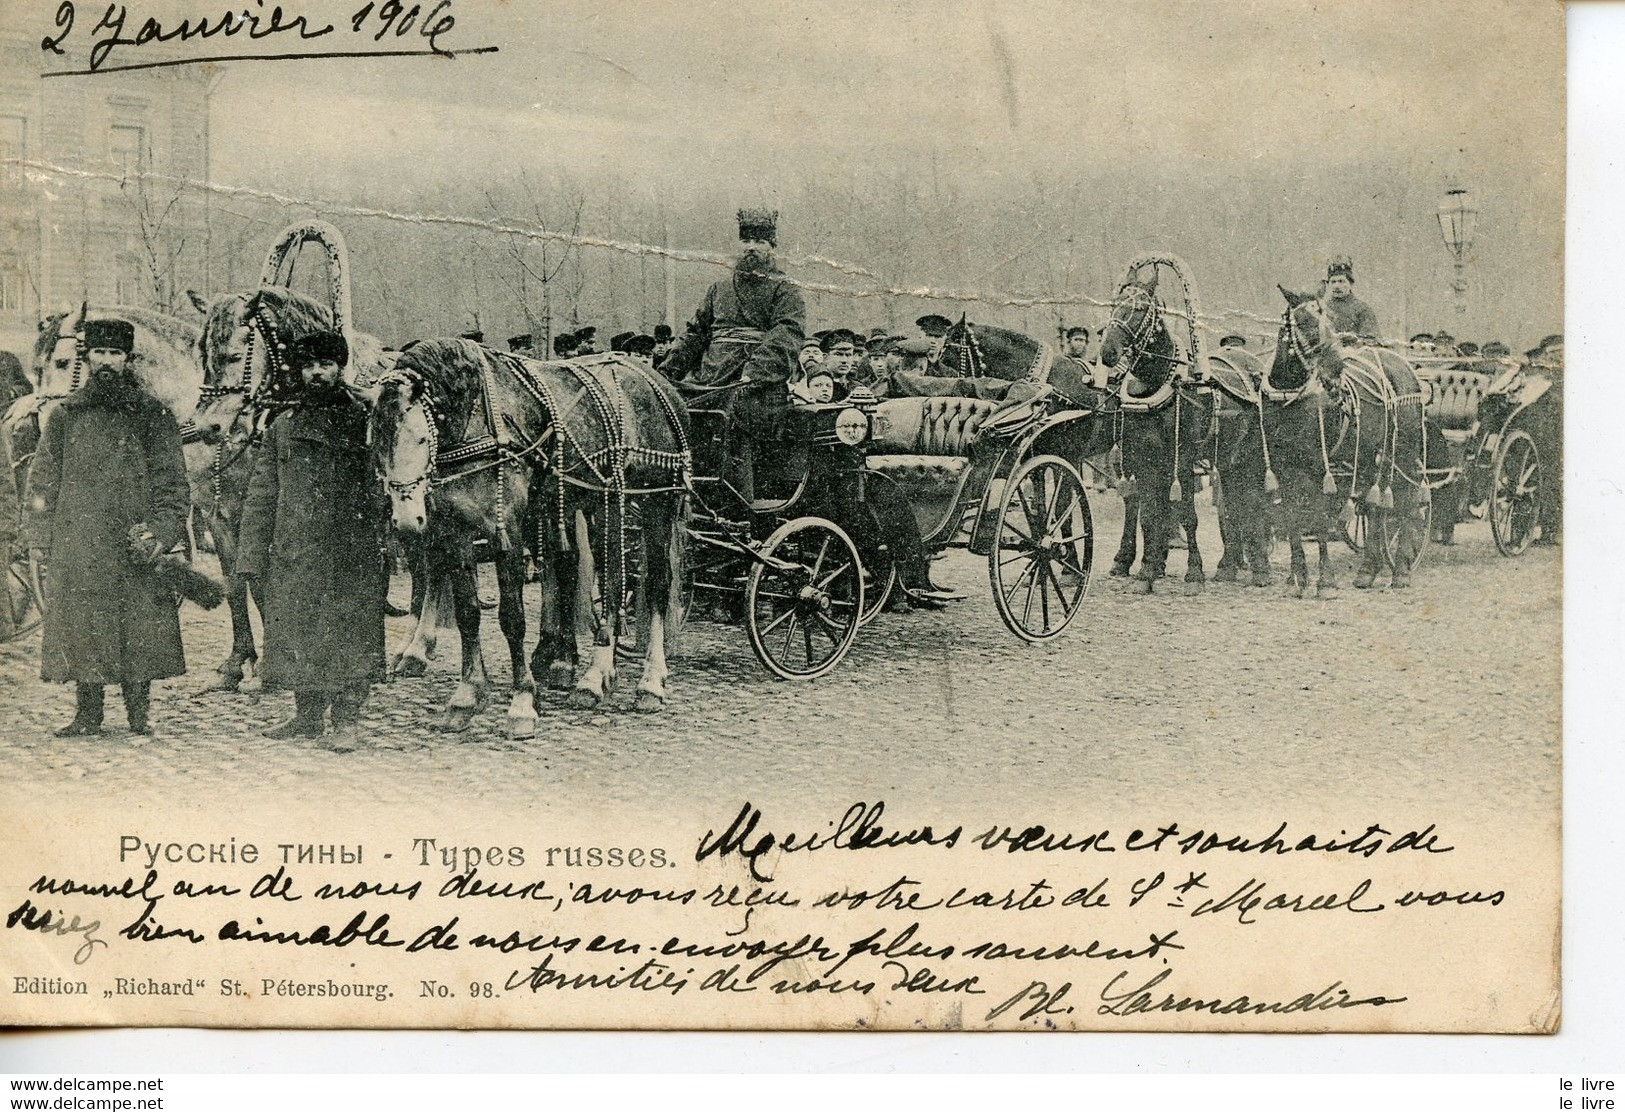 2 Janvier 1906
Русскіе типы - Types russes.
Meilleurs vœux et souhaits de
nouvel an de nous deux, avons reçu votre carte de St Marcel vous
seriez bien aimable de nous en envoyer plus souvent.
Edition „Richard“ St. Pétersbourg. No. 98.
Amitiés de nous deux
Bl. Larmandie
www.delcampe.net
le livre
www.delcampe.net
le livre